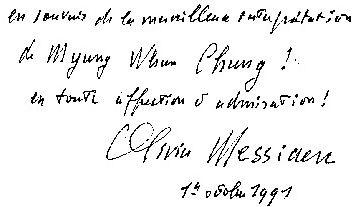 en souvenir de la merveilleuse interprétation
de Myung Whun Chung !
en toute affection et admiration !
Olivier Messiaen
1er octobre 1991